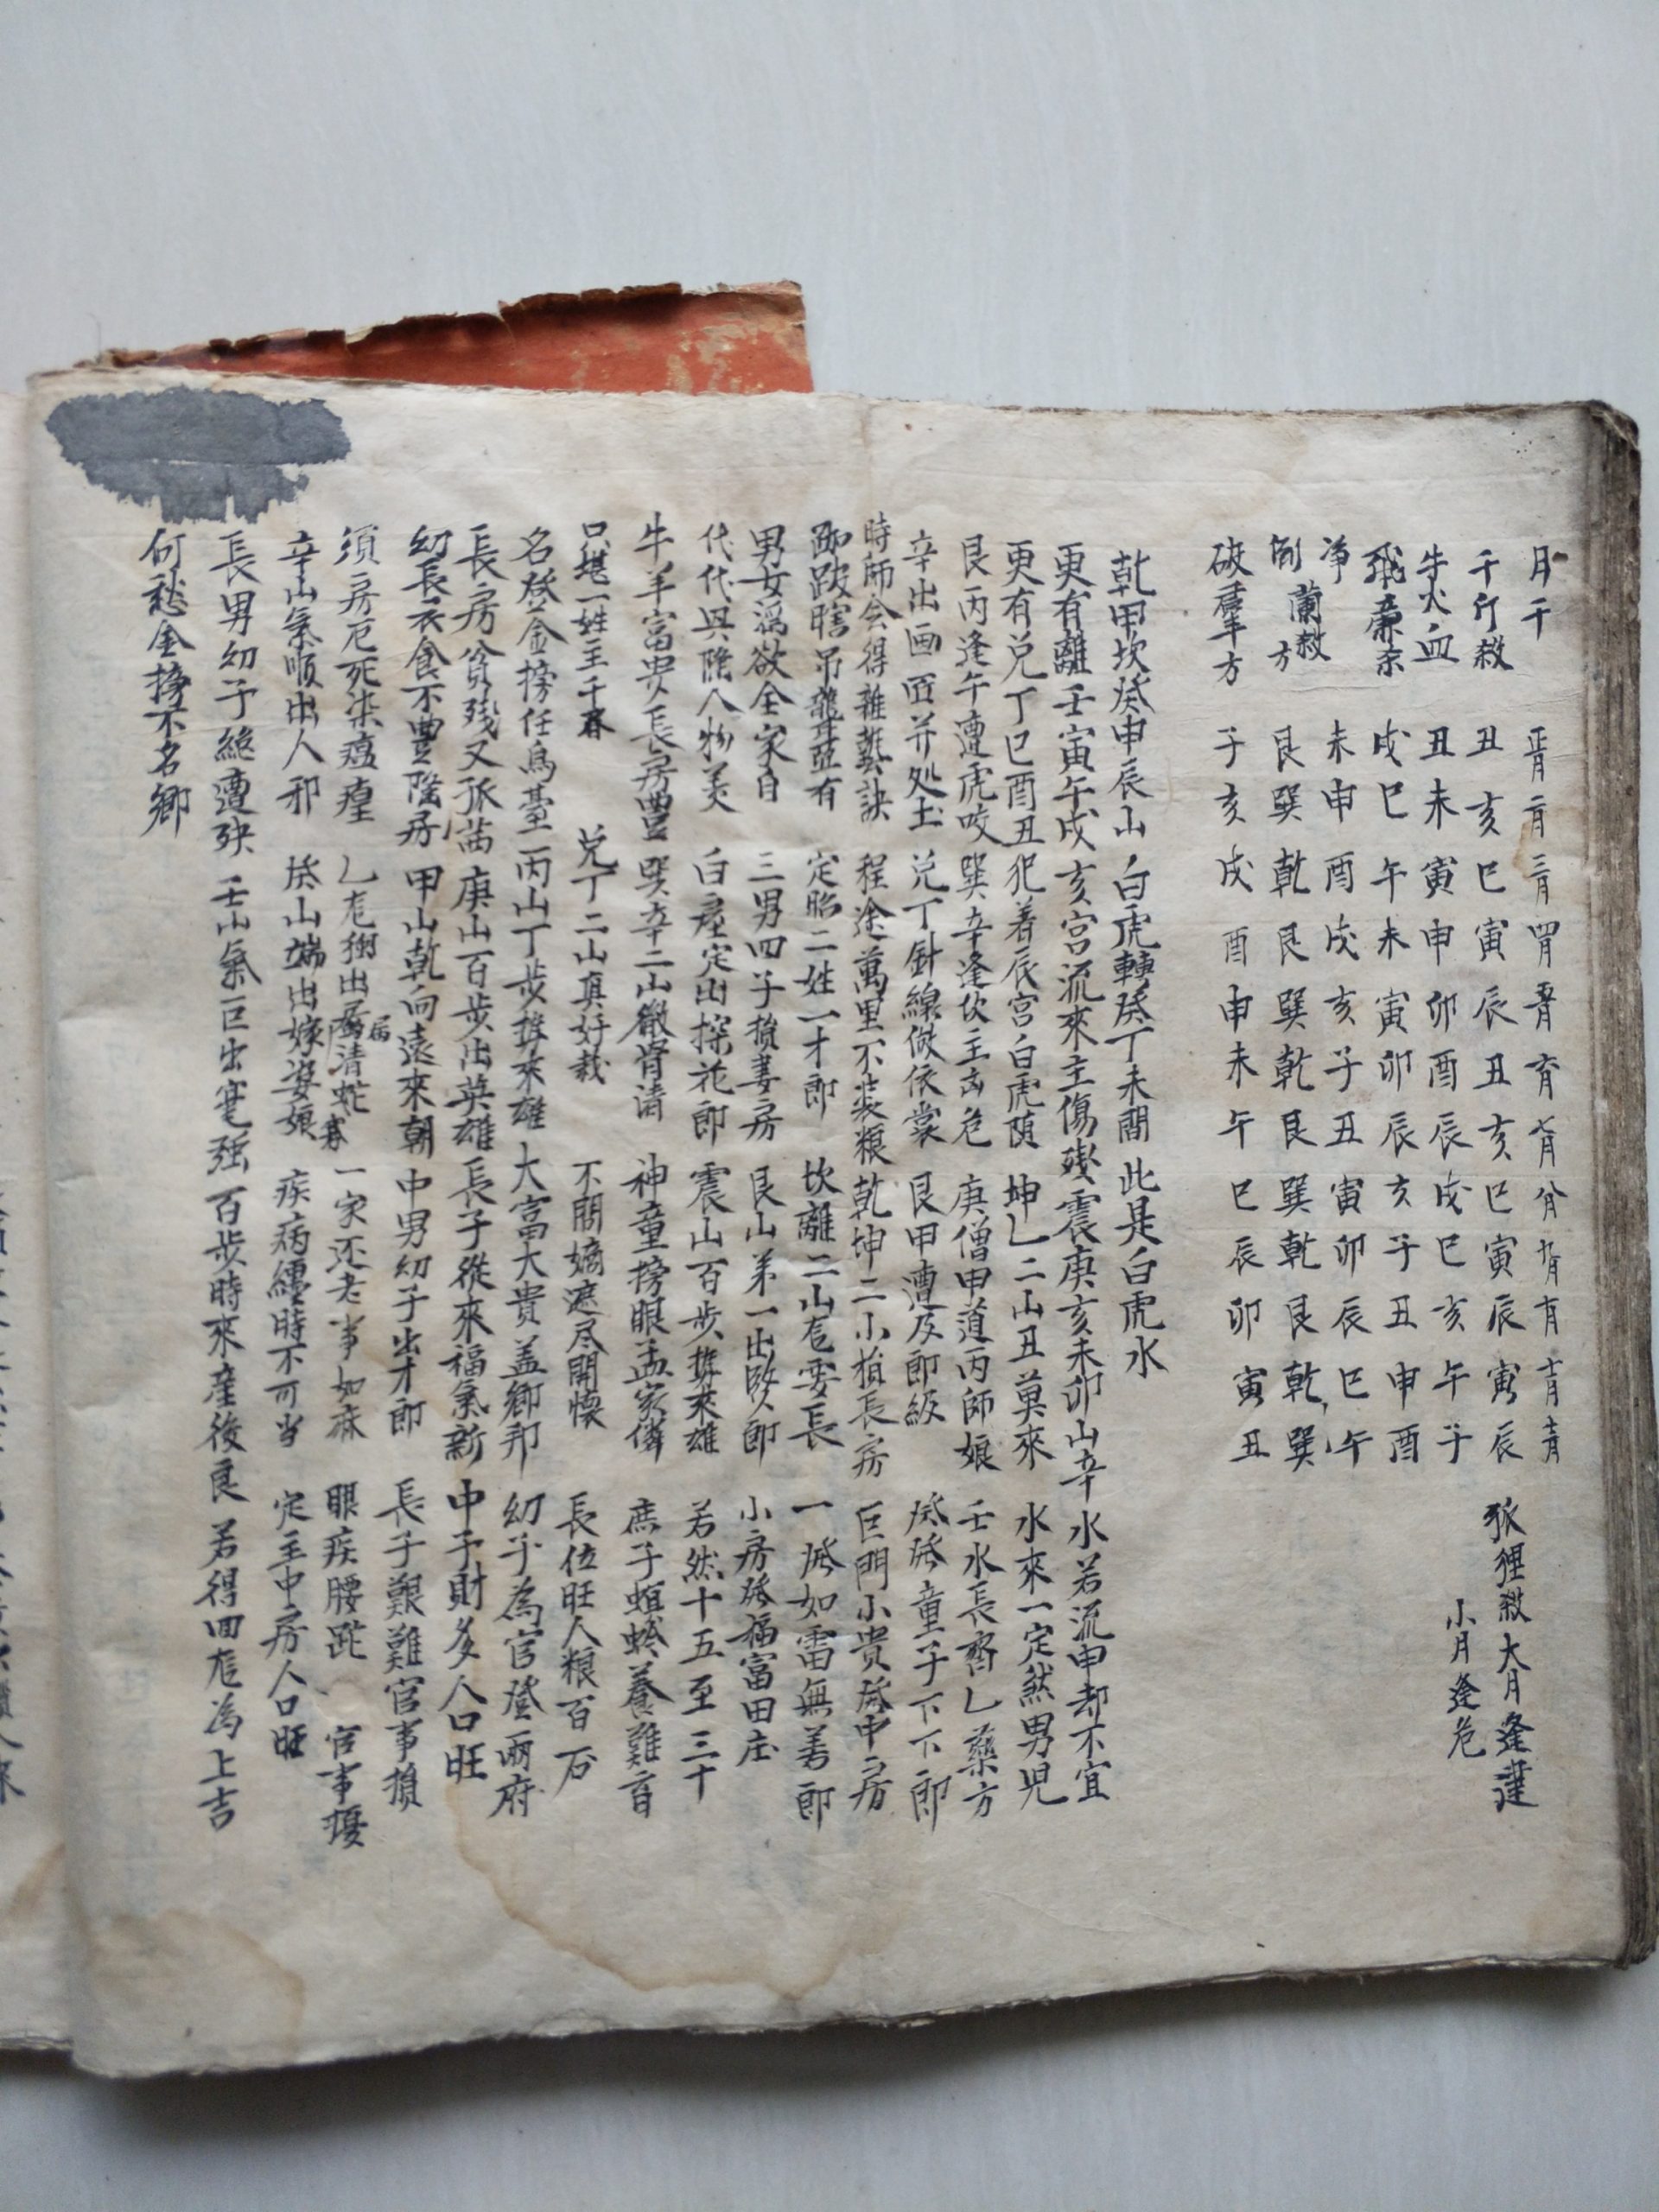 月干 正月 二月 三月 四月 五月 六月 七月 八月 九月 十月 十一月 十二月
千斤殺 丑亥巳寅辰丑亥巳寅辰寅辰 狐狸殺大月逢建
小月逢危
牛火血 丑未寅申卯酉辰戌巳亥午子
飛廉杀 戌巳午未寅卯辰亥子丑申酉
净 未申酉戌亥子丑寅卯辰巳午
倒蘭殺方 艮巽乾艮巽乾艮巽乾艮乾巽
破羣方 子亥戌酉申未午巳辰卯寅丑
乾甲坎癸申辰山 白虎轉癸丁未間 此是白虎水
更有離壬寅午戌 亥宮流來主傷殘 震庚亥未卯山辛 水若流申却不宜
更有兑丁巳酉丑 犯着辰宮白虎随 坤乚二山丑莫來 水來一定煞男児
艮丙逢午遭虎咬 巽辛逢坎主凶危 庚僧甲道丙師娘 壬水長齊乚藥方
辛出画匠并処士 兑丁針線做依裳 艮甲遭及即級 癸癸童子下下郎
時師会得雜藝訣 程途萬里不裝粮 乾坤二小損長房 巨門小貴發中房
跏跛瞎吊聾啞有 定賠二姓一才郎 坎離二山庀要長 一發如雷無善郎
男女滛欲全家自 三男四子損妻房 艮山第一出賢郎 小房發福富田庄
代代興隆人物美 白屋定出探花郎 震山百步摧來雄 若然十五至三十
牛羊富贵長房豊 巽辛二山徹膂清 神童榜眼孟家僯 庶子螟蛉養難育
只堪一姓主千春 兑丁二山真好栽 不關嫡遮尽開懷 長位旺人粮百石
名登金榜任烏臺 丙山丁步摧來雄 大富大貴盖鄉邦 幼子為官登兩府
長房貧残又孤苦 庚山百步出英雄 長子從來福氣新 中子財多人口旺
幼長衣食不豊隆房 甲山乾向遠來朝 中男幼子出才郎 長子艱難官事損
須房厄死柒瘟瘽 乚庀獨出腐清蛇寡 一家还老事如麻 眼疾腰跎 官事擾
辛山氣順出人邪 癸山端出嫁婆娘 疾病纏時不可当 定主中房人口旺
長男幼子絶遭殃 壬山氣巨出毫强 百步時來產後良 若得四庀為上吉
何愁金榜不名鄉